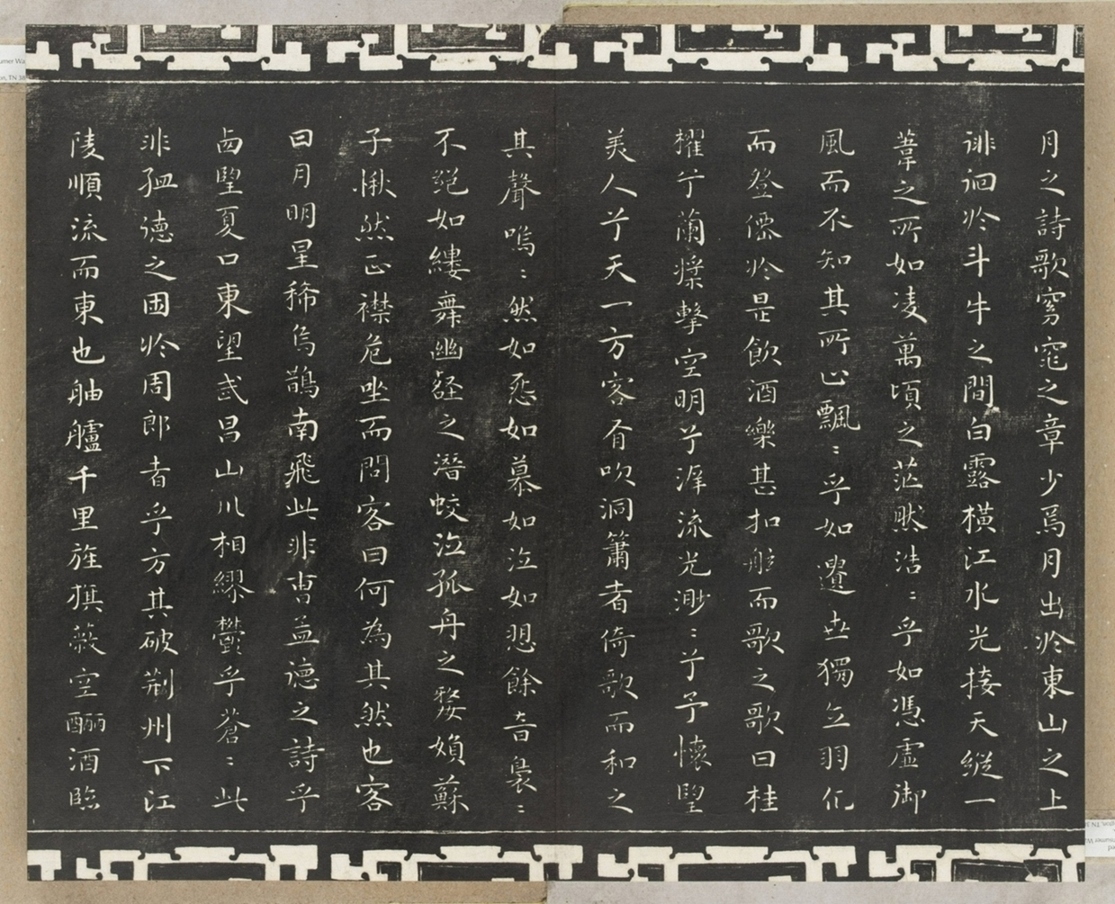 月之詩歌窈窕之章少焉月出於東山之上
徘徊於斗牛之間白露橫江水光接天縱一
葦之所如凌萬頃之茫然浩〻乎如憑虛御
風而不知其所止飄〻乎如遺世獨立羽化
而登僊於是飲酒樂甚扣舷而歌之歌曰桂
櫂兮蘭槳擊空明兮泝流光渺〻兮予懷望
美人兮天一方客有吹洞簫者倚歌而和之
其聲嗚〻然如怨如慕如泣如愬餘音裊〻
不絕如縷舞幽壑之潛蛟泣孤舟之嫠婦蘇
子愀然正襟危坐而問客曰何為其然也客
曰月明星稀烏鵲南飛此非曹孟德之詩乎
西望夏口東望武昌山川相繆鬱乎蒼〻此
非孟德之困於周郎者乎方其破荊州下江
陵順流而東也舳艫千里旌旗蔽空釃酒臨